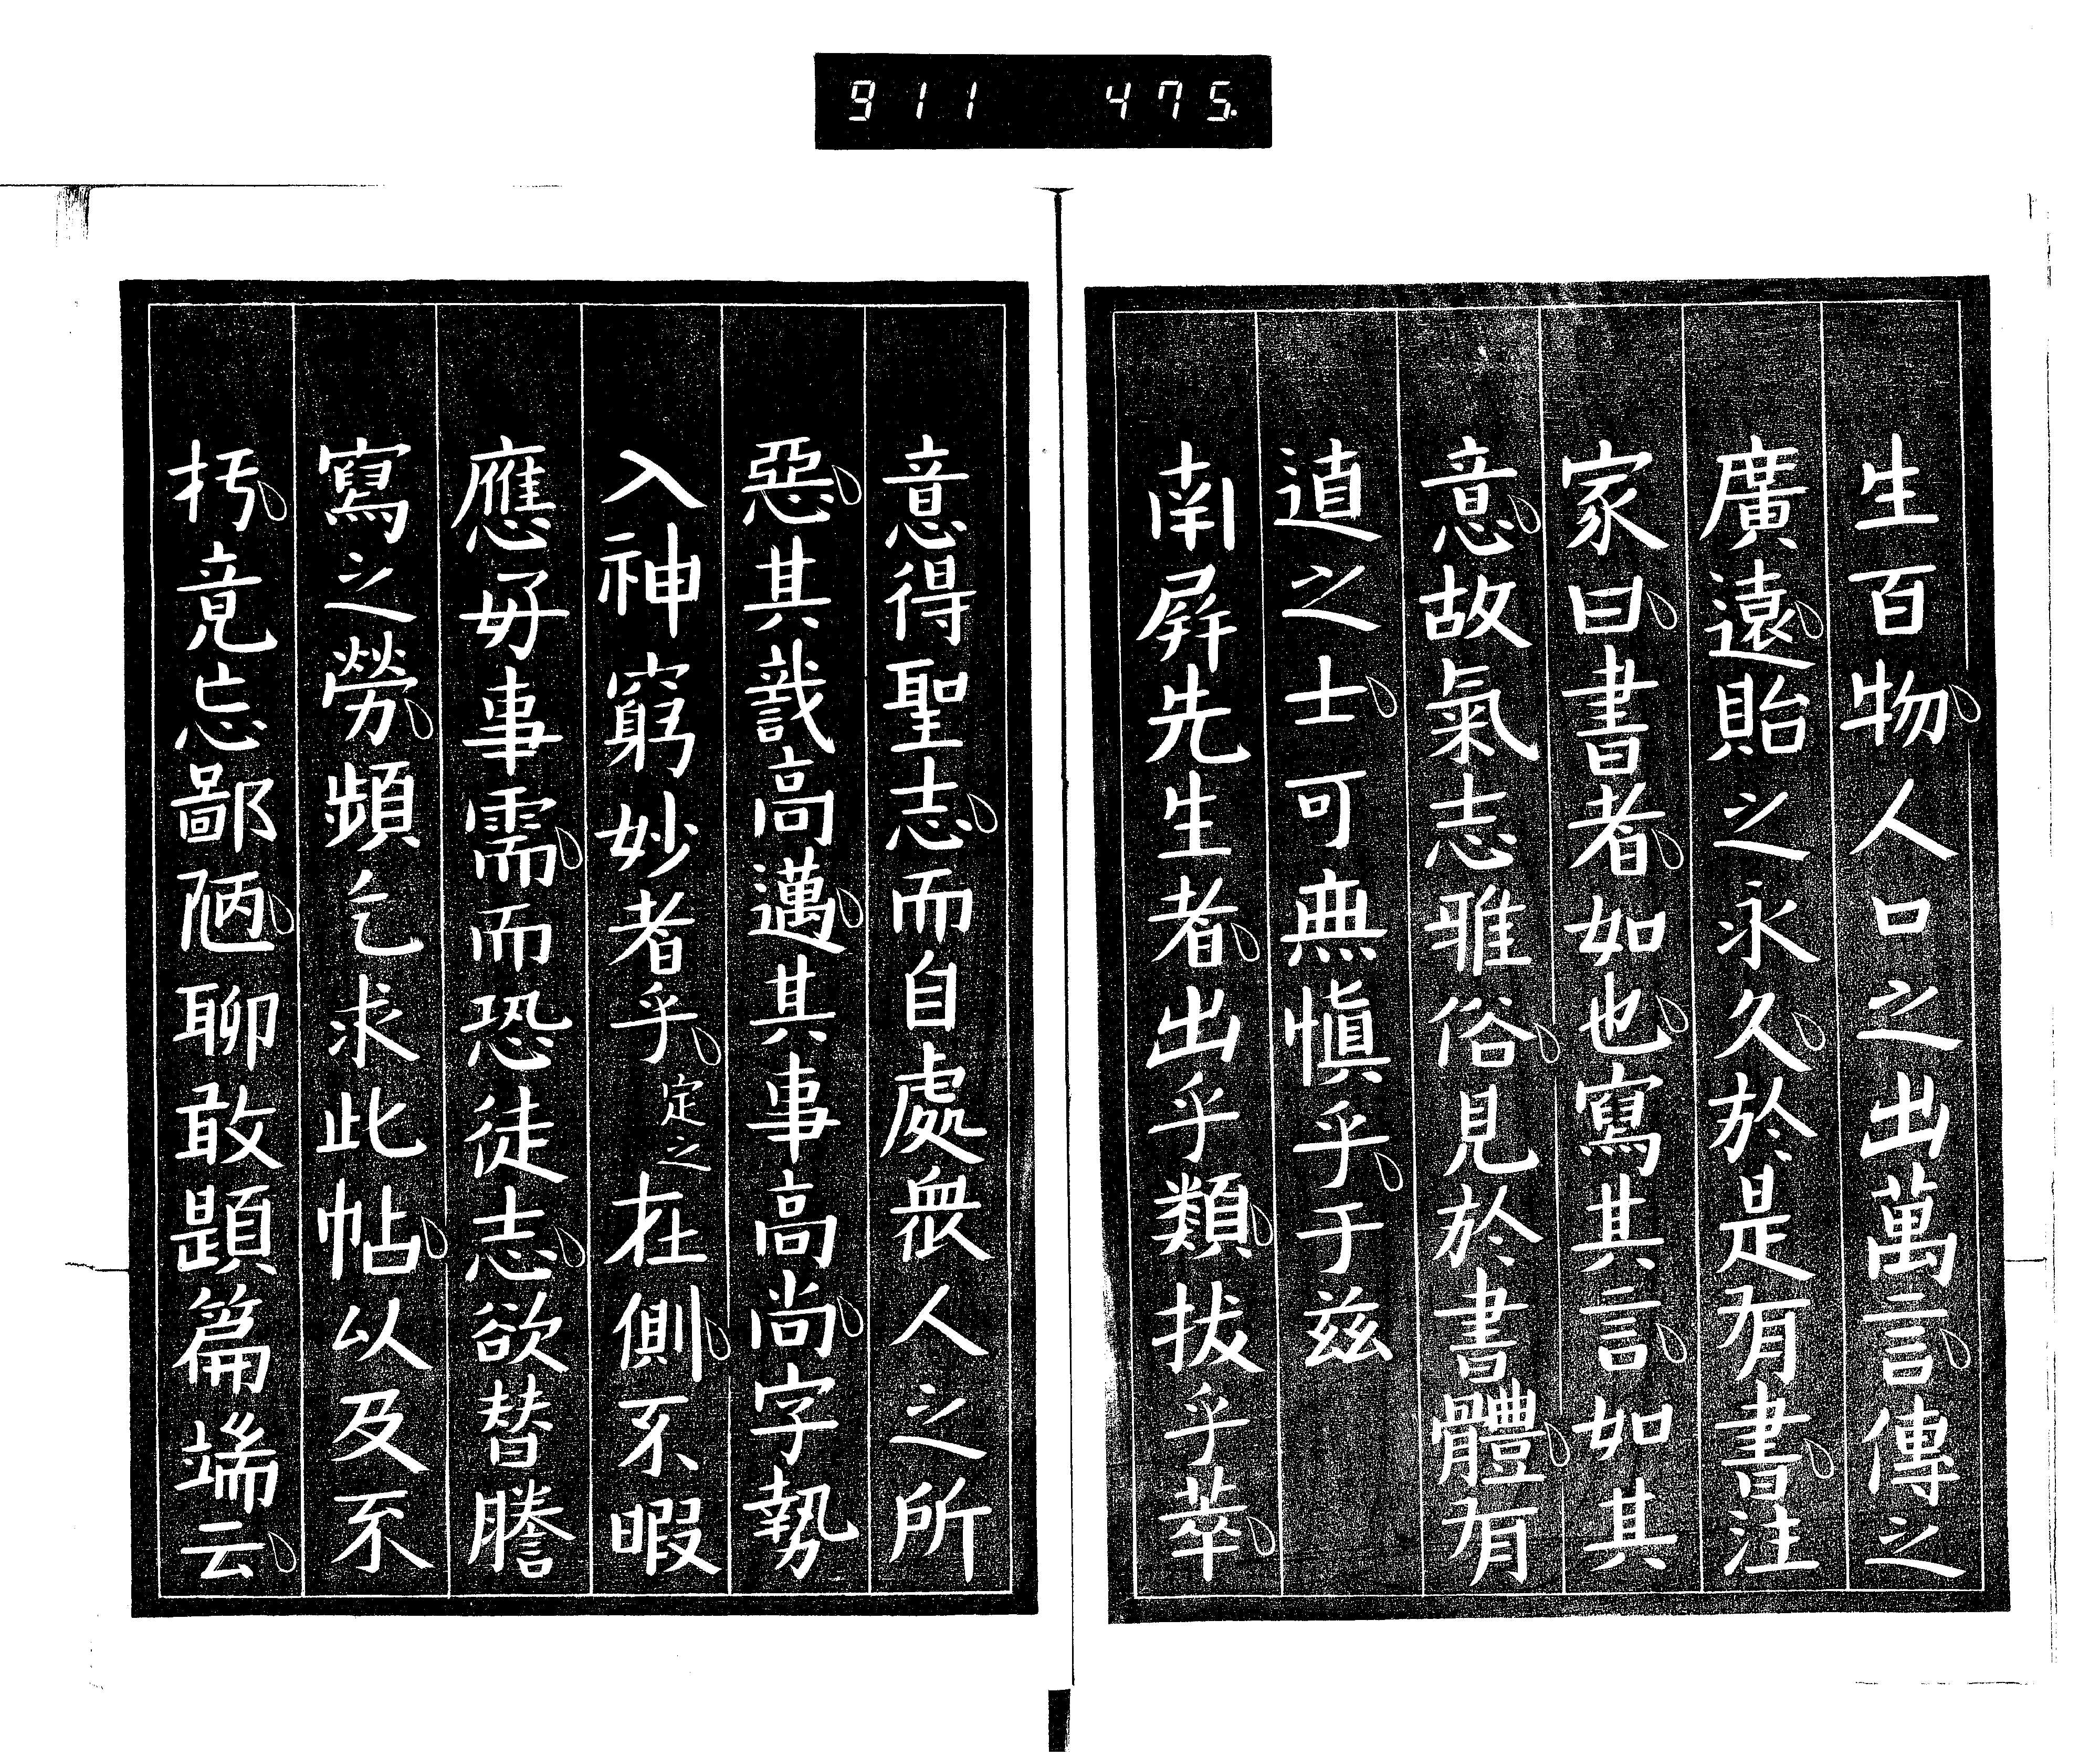 911 475.
生百物人口之出萬言傳之
廣遠貽之永久於是有書注
家曰書者如也寫其言如其
意故氣志雅俗見於書體有
道之士可無愼乎于兹
南屛先生者出乎類拔乎萃
意得聖志而自處衆人之所
惡其識高邁其事高尚字勢
入神窮妙者乎定之在側不暇
應毎事需而恐徒志欲替謄
寫之勞頻乞求此帖以及不
朽竟忘鄙陋聊敢題篇端云